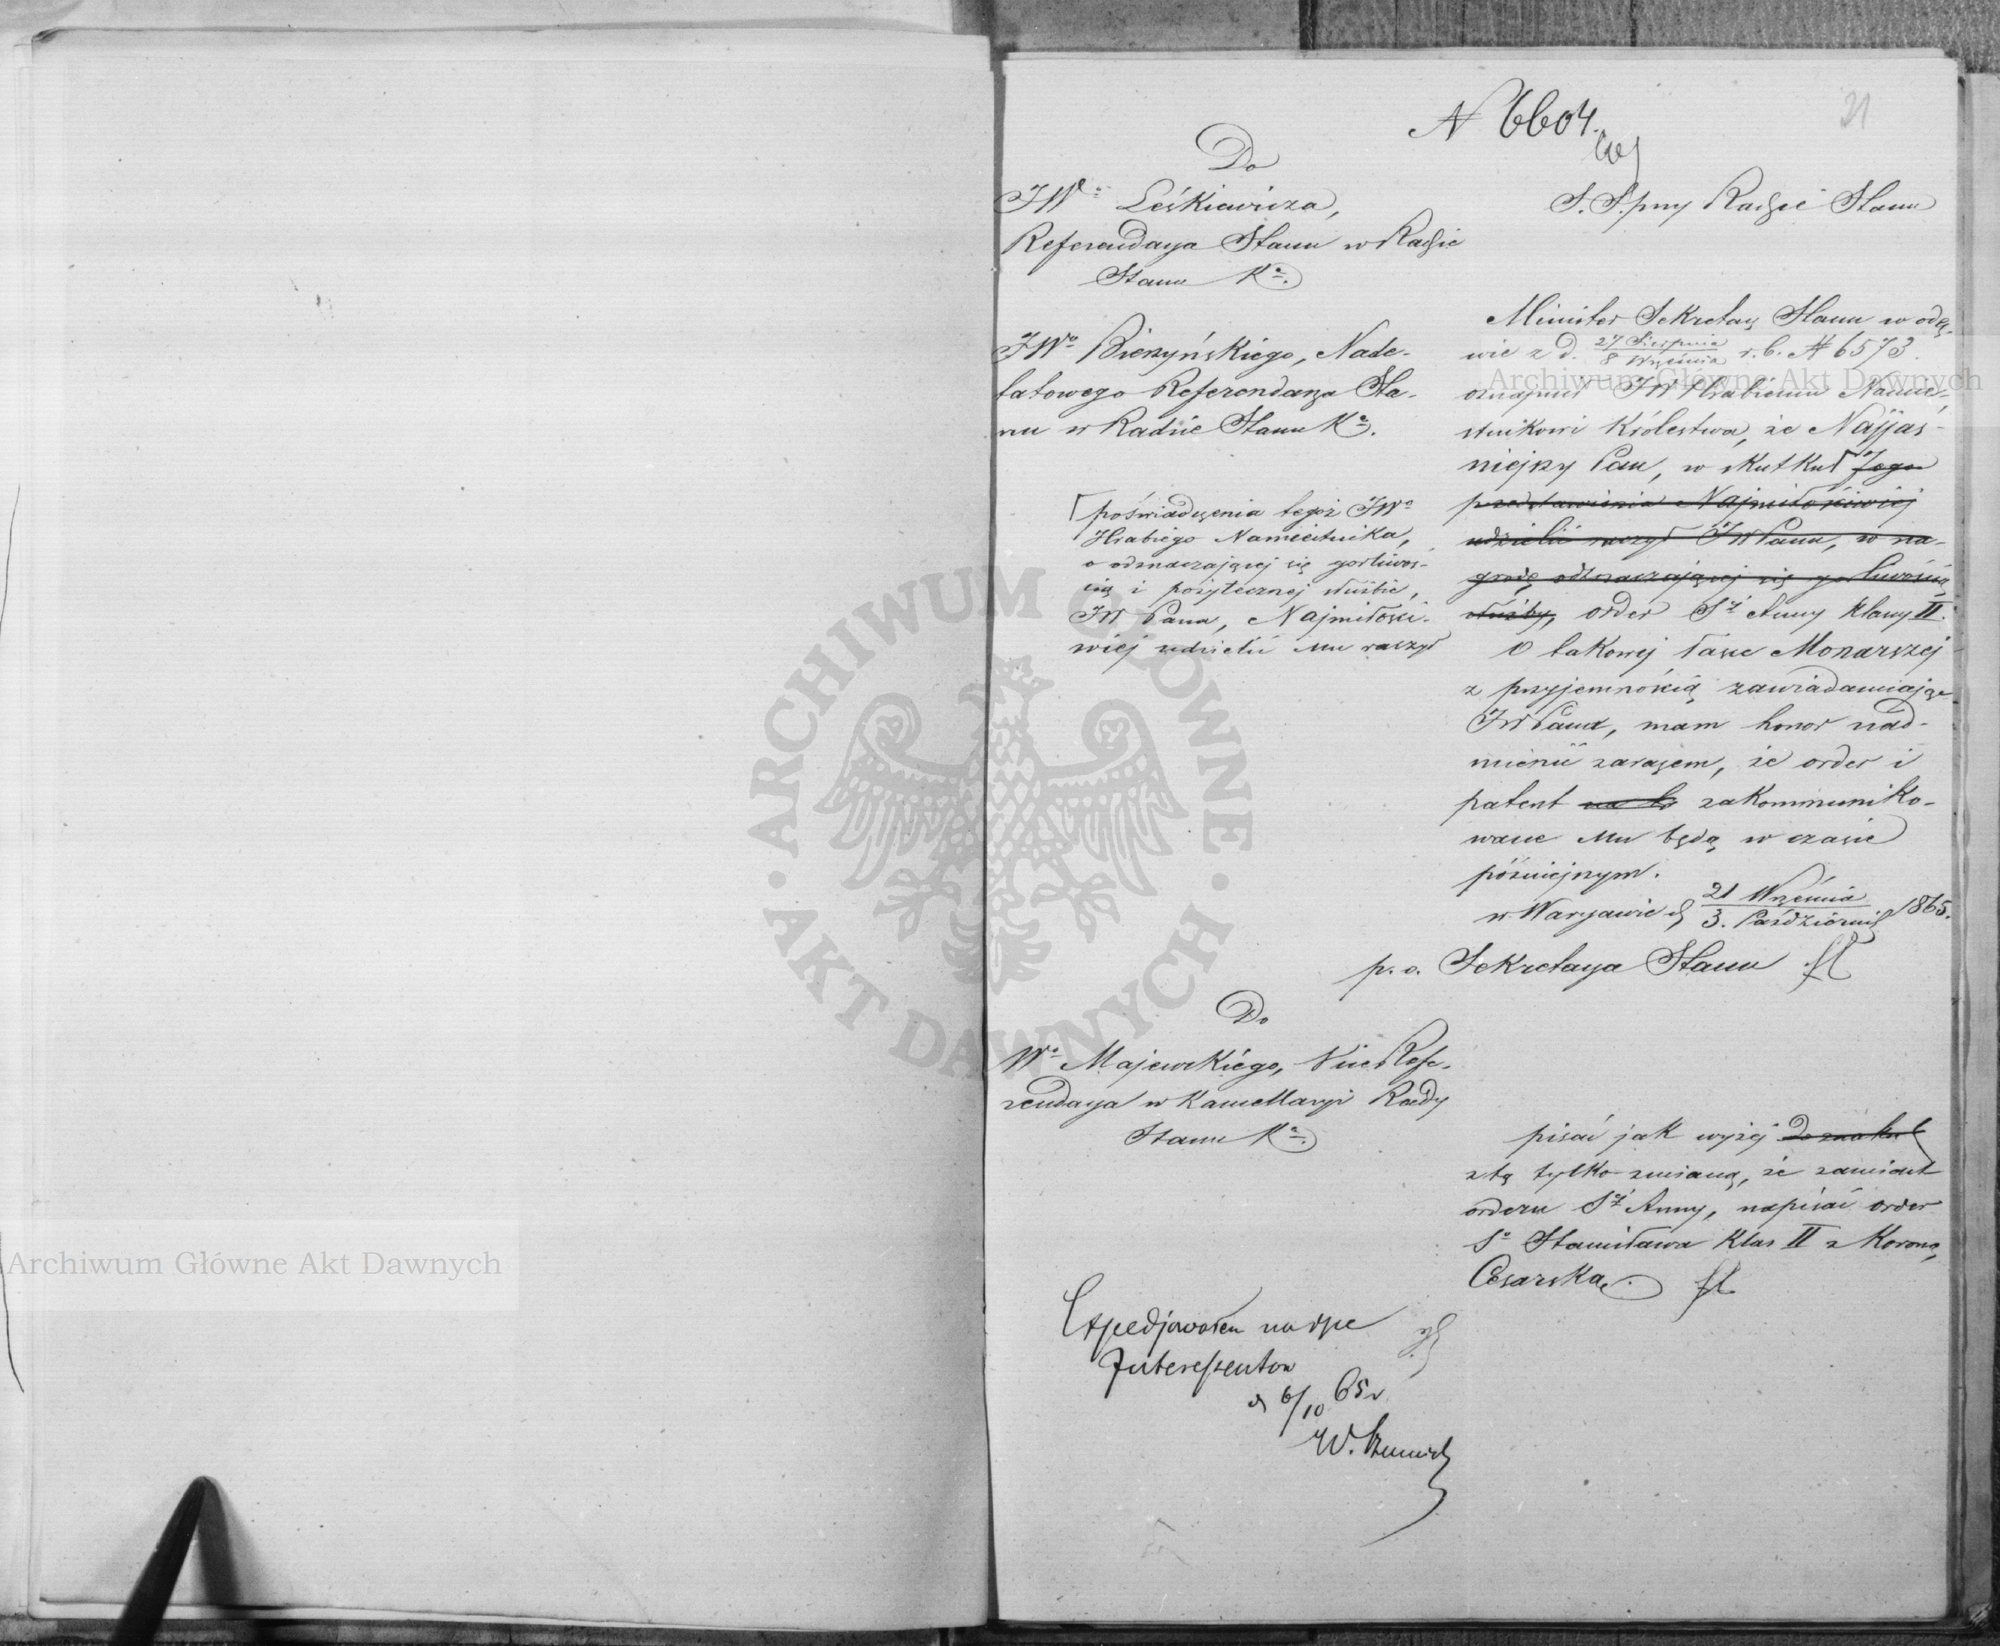 21
N 6604.
Do
JWº Leśkiewicza,
Referendarza Stanu w Radzie
Stanu Kª.
S. S. przy Radzie Stanu
JWº Bierzyńskiego, Nade-
tatowego Referendarza Sta-
nu w Radzie Stanu Kª.
poświadczenia tegoż JWº
Hrabiego Namiestnika,
o odznaczającej się gorliwoś-
cią i pożytecznej służbie,
JW Pana, Najmiłości-
wiej udzielić mu raczył
Minister Sekretarz Stanu w odez-
wie z d. 27 Sierpnia / 8 Września r. b. N 6573
oznajmił JW Hrabiemu Namie-
stnikowi Królestwa, że Najjaś-
niejszy Pan, w skutku Jego
przedstawienia Najmiłościwiej
udzielić raczył JW Panu, w na-
grodę odznaczającej się gorliwością
służby, order Sej Anny klassy II.
O takowej łasce Monarszej
z przyjemnością zawiadamiając
JW Pana, mam honor nad-
mienić zarazem, że order i
patent na to zakommuniko-
wane mu będą w czasie
późniejszym.
w Warszawie d. 21 Września / 3. Październik 1865.
p. o. Sekretarza Stanu
Do
Wº Majewskiego, Vice Refe-
rendarza w Kancellaryi Rady
Stanu Kª.
pisać jak wyżej do znaku
z tą tylko zmianą, że zamiast
orderu Sej Anny, napisać order
Sº Stanisława klas II z Koroną
Cesarską.
Expedjowałem na ręce
Interessentów
d 6/10 65 r
ARCHIWUM GŁÓWNE · AKT DAWNYCH ·
Archiwum Główne Akt Dawnych
Archiwum Główne Akt Dawnych